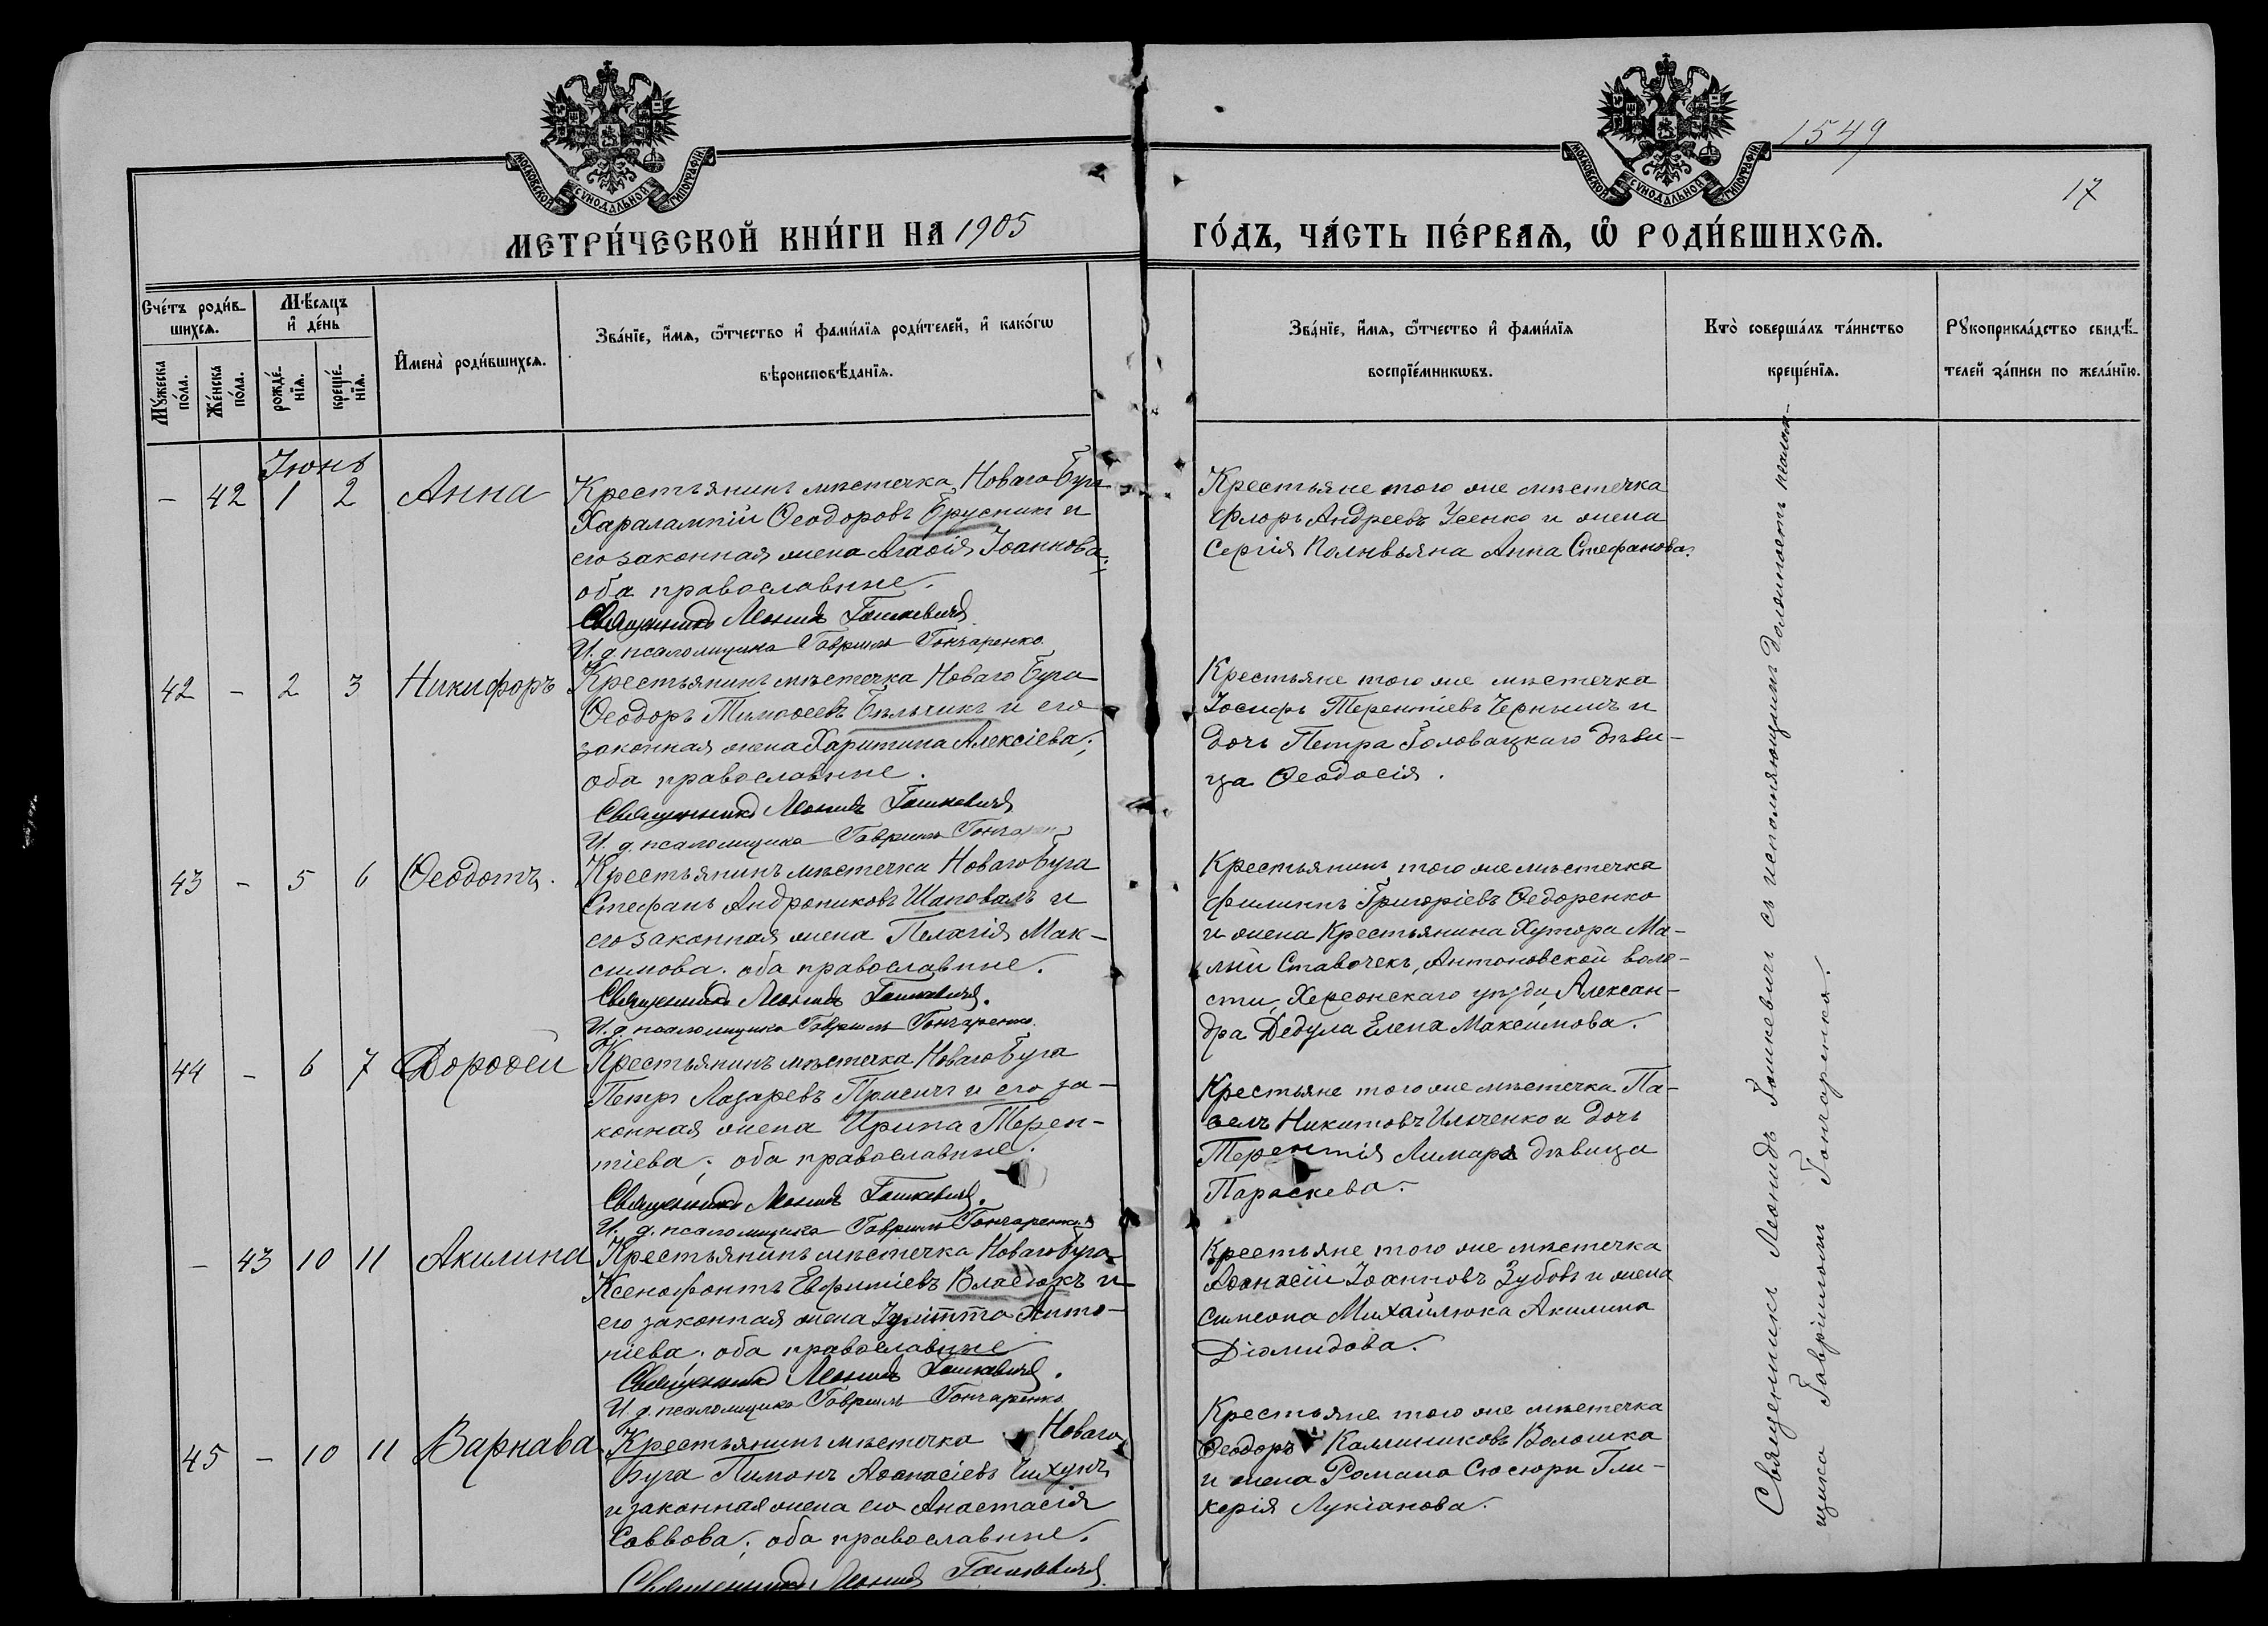 1549
17
МОСКОВСКОЙ СѴНОДАЛЬНОЙ ТИПОГРАФІИ.
МОСКОВСКОЙ СѴНОДАЛЬНОЙ ТИПОГРАФІИ.
МЕТРИ́ЧЕСКОЙ КНИ́ГИ НА 1905
ГО́ДЪ, ЧА́СТЬ ПЕ́РВАѦ, Ѡ҆ РОДИ́ВШИХСѦ.
Сче́тъ роди́в-
шихсѧ.
Мꙋ́жеска
по́ла.
Же́нска
по́ла.
Мѣ́сѧцъ
и҆ де́нь
рожде́-
нїѧ.
креще́-
нїѧ.
И҆мена̀ роди́вшихсѧ.
Зва́нїе, и҆́мѧ, ѻ҆́тчество и҆ фами́лїѧ роди́телей, и҆ како́гѡ
вѣроисповѣ́данїѧ.
Зва́нїе, и҆́мѧ, ѻ҆́тчество и҆ фами́лїѧ
воспрїе́мникѡвъ.
Кто̀ соверша́лъ та́инство
креще́нїѧ.
Рꙋкоприкла́дство свидѣ́-
телей за́писи по жела́нїю.
Іюнь
- 42 1 2 Анна
Крестьянинъ мѣстечка Новаго Буга
Харалампій Ѳеодоровъ Брусникъ и
его законная жена Агаѳія Іоаннова;
оба православные.
Священникъ Леонидъ Гошкевичъ
И. д. псаломщика Гавріилъ Гончаренко
Крестьяне того же мѣстечка
Флоръ Андреевъ Усенко и жена
Сергія Полывьяна Анна Стефанова.
42 - 2 3 Никифоръ
Крестьянинъ мѣстечка Новаго Буга
Ѳеодоръ Тимоѳеевъ Бѣльчикъ и его
законная жена Харитина Алексіева;
оба православные.
Священникъ Леонидъ Гошкевичъ
И. д. псаломщика Гавріилъ Гончаренко
Крестьяне того же мѣстечка
Іосифъ Терентіевъ Чернышъ и
дочь Петра Головацкаго дѣви-
ца Ѳеодосія.
43 - 5 6 Ѳеодотъ.
Крестьянинъ мѣстечка Новаго Буга
Стефанъ Андрониковъ Шаповалъ и
его законная жена Пелагія Мак-
симова. оба православные.
Священникъ Леонидъ Гошкевичъ.
И. д. псаломщика Гавріилъ Гончаренко.
Крестьянинъ того же мѣстечка
Филиппъ Григоріевъ Ѳедоренко
и жена Крестьянина Хутора Ма-
лый Ставочекъ, Антоновской воло-
сти, Херсонскаго уѣзда, Алексан-
дра Дедула Елена Максимова.
44 - 6 7 Дороѳей
Крестьянинъ мѣстечка Новаго Буга
Петръ Лазаревъ Присичъ и его за-
конная жена Ирина Терен-
тіева; оба православные.
Священникъ Леонидъ Гошкевичъ.
И. д. псаломщика Гавріилъ Гончаренко
Крестьяне того же мѣстечка Па-
велъ Никитовъ Ильченко и дочь
Терентія Лимаря дѣвица
Параскева.
- 43 10 11 Акилина
Крестьянинъ мѣстечка Новаго Буга
Ксенофонтъ Евфиміевъ Власюкъ и
его законная жена Іулитта Анто-
ніева. оба православные
Священникъ Леонидъ Гошкевичъ.
И. д. псаломщика Гавріилъ Гончаренко
Крестьяне того же мѣстечка
Аѳанасій Іоанновъ Зубовъ и жена
Симеона Михайлюка Акилина
Діомидова.
45 - 10 11 Варнава
Крестьянинъ мѣстечка Новаго
Буга Пимонъ Аѳанасіевъ Чихунъ
и законная жена его Анастасія
Саввова; оба православные.
Священникъ Леонидъ Гошкевичъ
Крестьяне того же мѣстечка
Ѳеодоръ Каллиниковъ Волошка
и жена Романа Сюсюры Гли-
керія Лукіанова.
Священникъ Леонидъ Гошкевичъ съ исполняющимъ должность псалом-
щика Гавріиломъ Гончаренко.